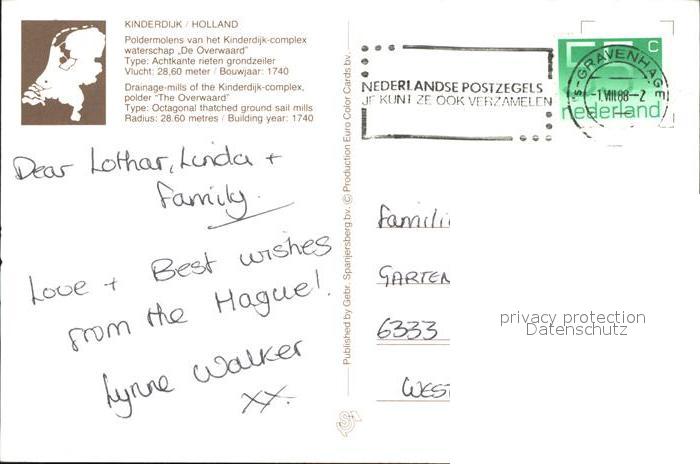 KINDERDIJK / HOLLAND
Poldermolens van het Kinderdijk-complex
waterschap „De Overwaard"
Type: Achtkante rieten grondzeiler
Vlucht: 28,60 meter / Bouwjaar: 1740
Drainage-mills of the Kinderdijk-complex,
polder "The Overwaard"
Type: Octagonal thatched ground sail mills
Radius: 28.60 metres / Building year: 1740
Dear Lothar, Linda +
Family.
Love + Best wishes
from the Hague!.
Lynne Walker
XX.
Published by Gebr. Spanjersberg bv. © Production Euro Color Cards bv.
NEDERLANDSE POSTZEGELS
JE KUNT ZE OOK VERZAMELEN
'S-GRAVENHAGE
-1.VIII.88.-2
c
nederland
Famili
GARTEN
6333
WEST
privacy protection
Datenschutz